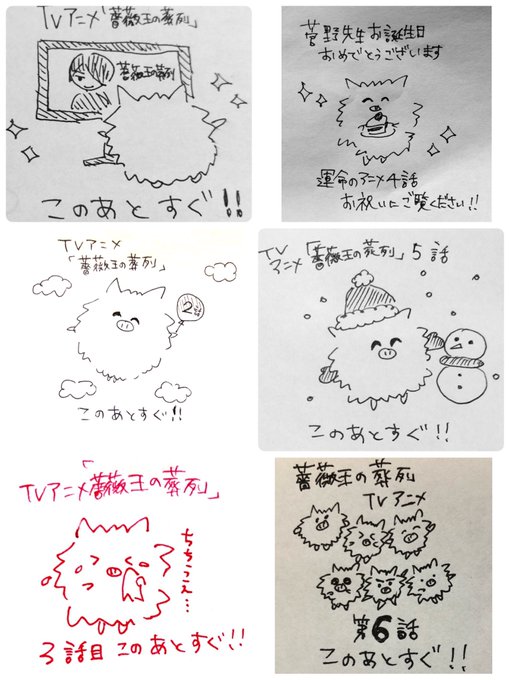 TVアニメ「薔薇王の葬列」
薔薇王の葬列
このあとすぐ!!
菅野先生お誕生日
おめでとうございます
運命のアニメ4話
お祝いにご覧ください!!
TVアニメ
「薔薇王の葬列」
2
このあとすぐ!!
TV
アニメ「薔薇王の葬列」5話
このあとすぐ!!
TVアニメ「薔薇王の葬列」
ちちうえ…
3話目 このあとすぐ!!
薔薇王の葬列
TVアニメ
第6話
このあとすぐ!!